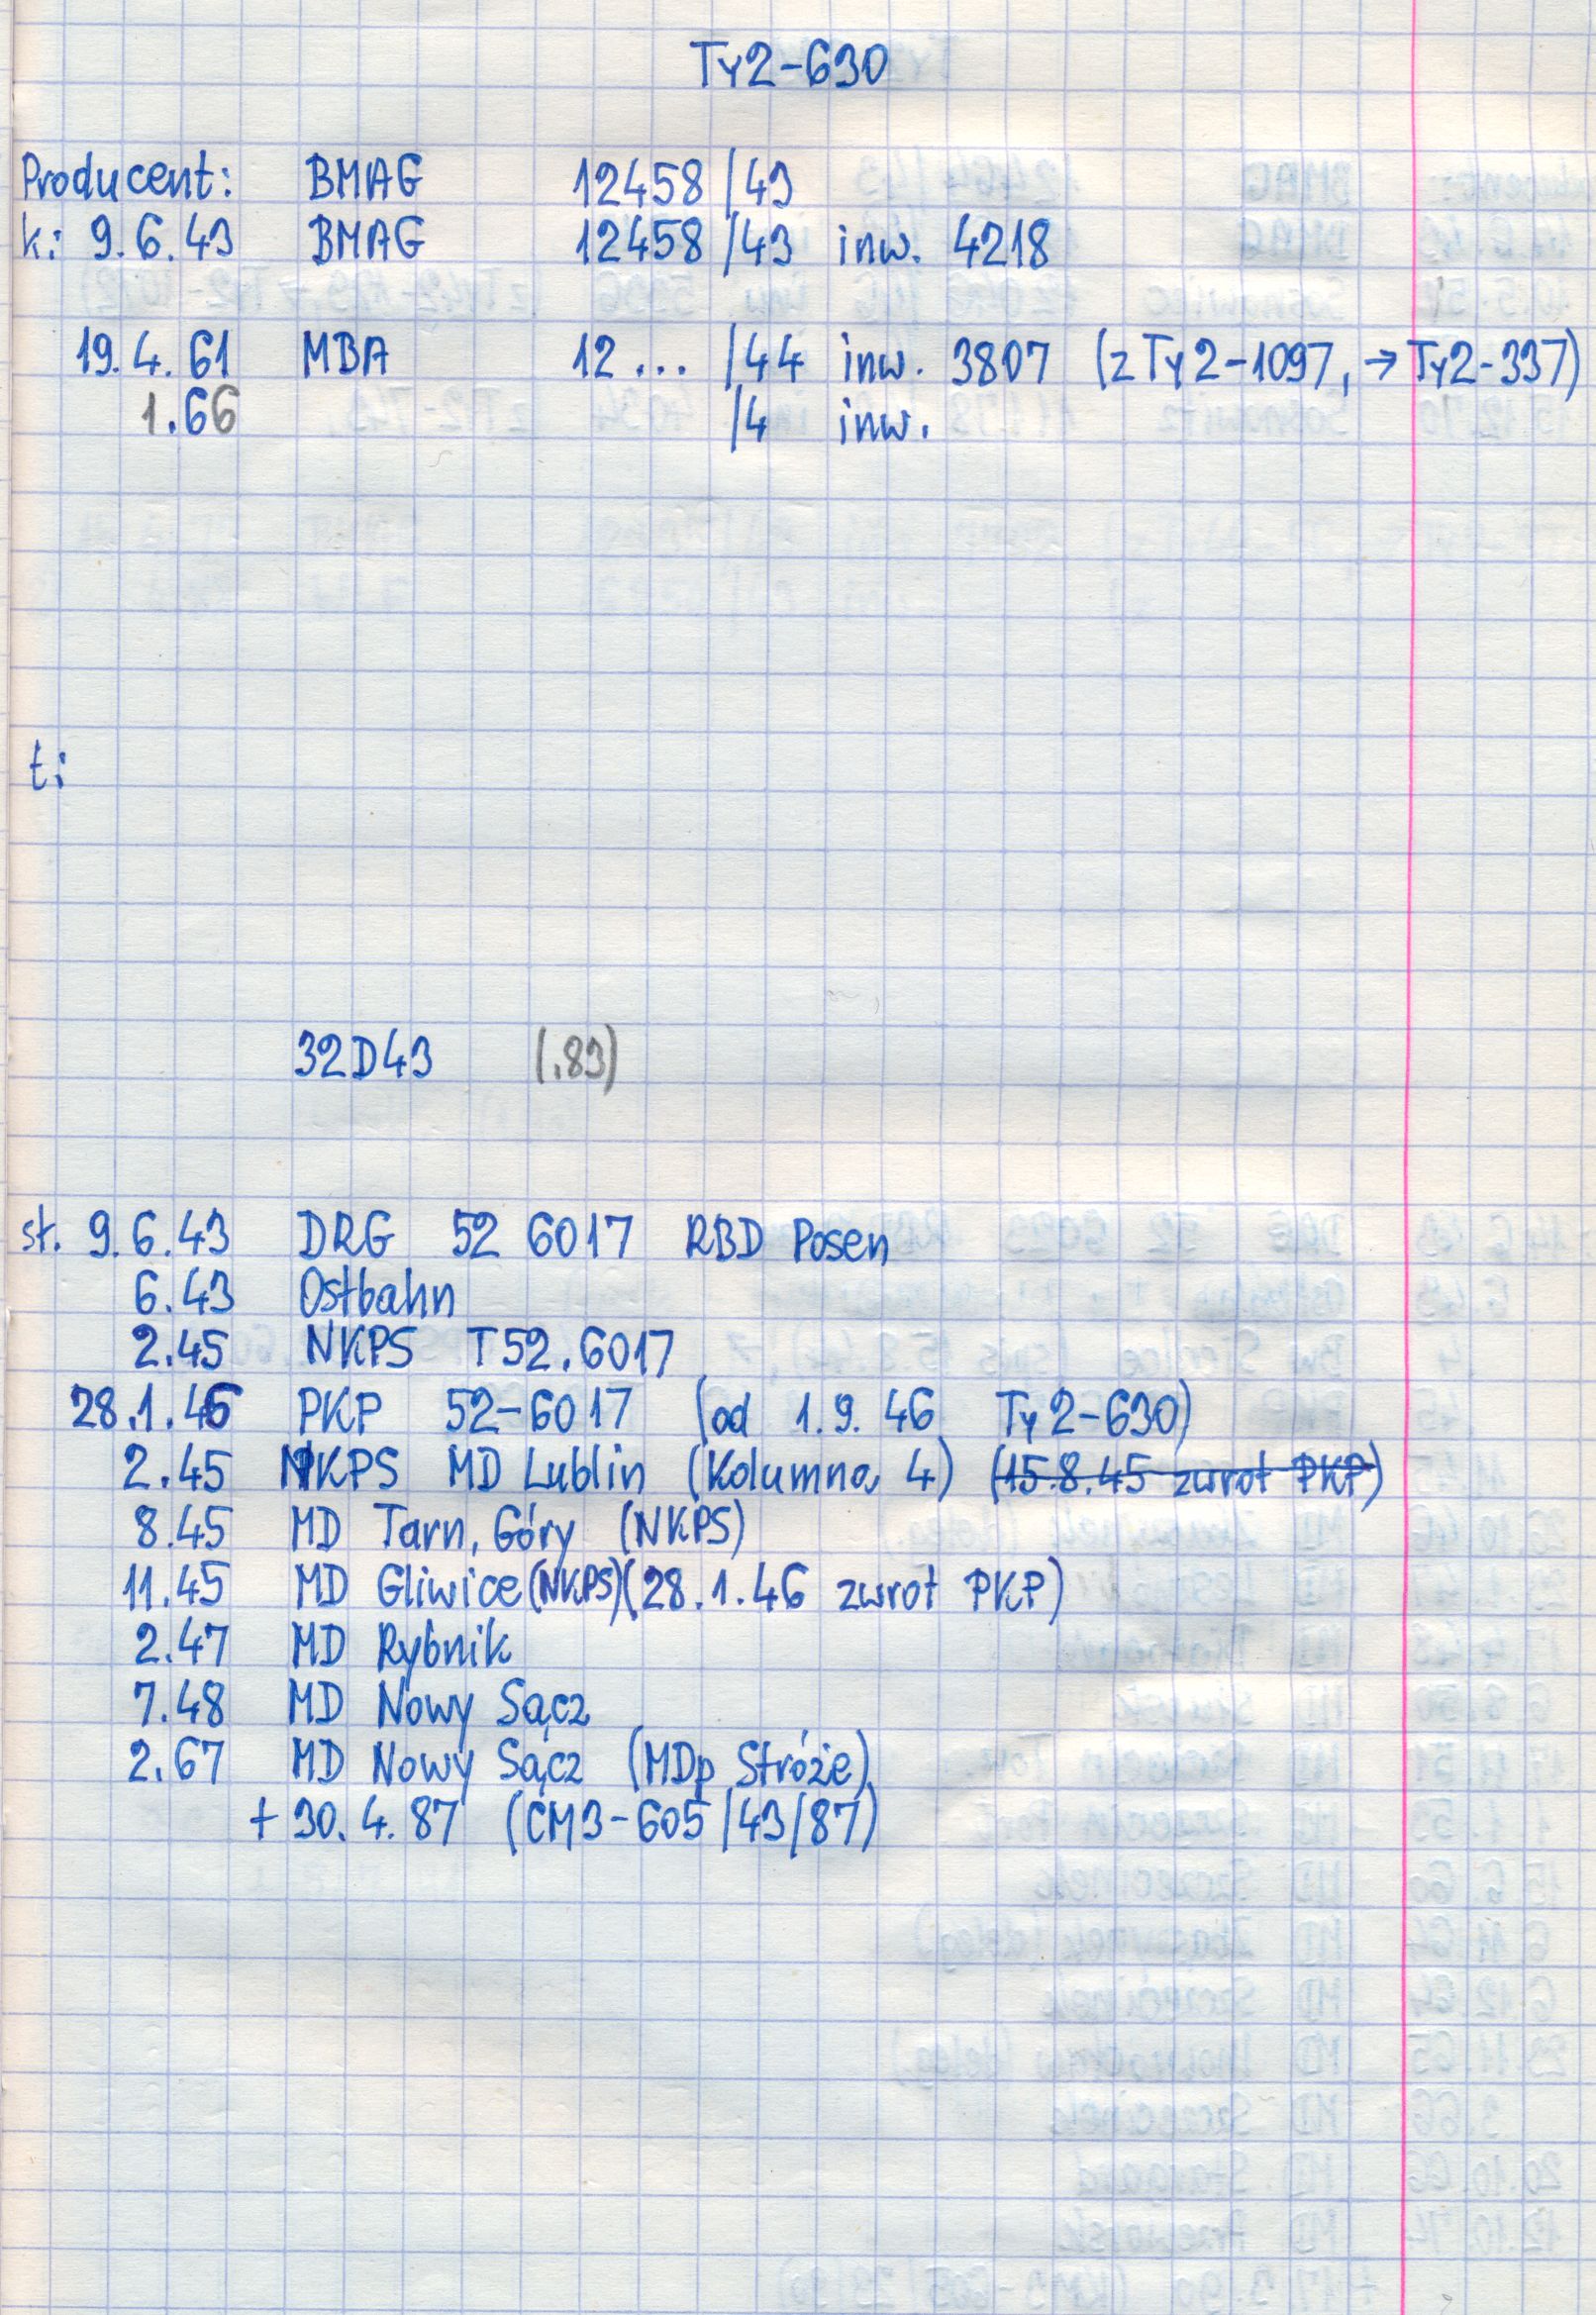 Ty2-630
Producent: BMAG 12458/43
k: 9.6.43 BMAG 12458/43 inw. 4218
19.4.61 MBA 12... /44 inw. 3807 (z Ty2-1097, → Ty2-337)
1.66 /4 inw.
t:
32D43 (.83)
st. 9.6.43 DRG 52 6017 RBD Posen
6.43 Ostbahn
2.45 NKPS T52.6017
28.1.46 PKP 52-6017 (od 1.9.46 Ty2-630)
2.45 NKPS MD Lublin (Kolumna 4) (15.8.45 zwrot PKP)
8.45 MD Tarn. Góry (NKPS)
11.45 MD Gliwice (NKPS) (28.1.46 zwrot PKP)
2.47 MD Rybnik
7.48 MD Nowy Sącz
2.67 MD Nowy Sącz (MDp Stróże)
+ 30.4.87 (CM3-605/43/87)